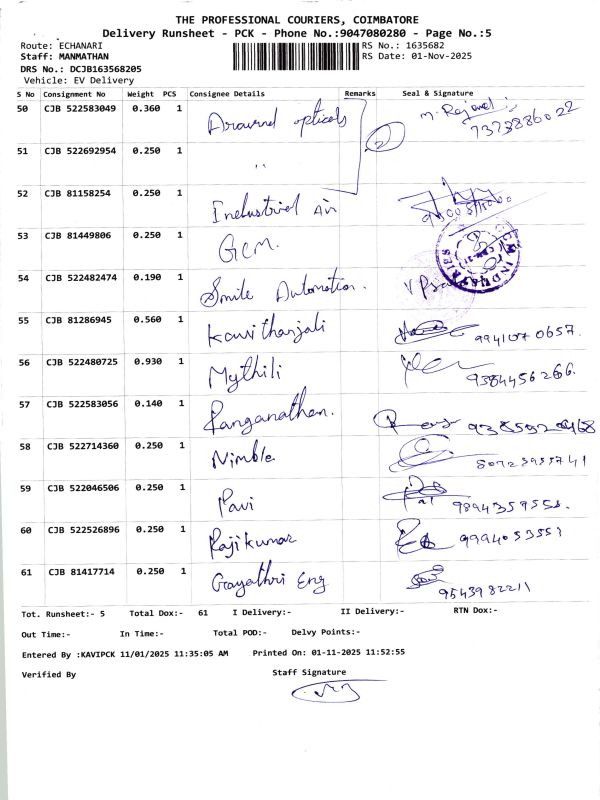 THE PROFESSIONAL COURIERS, COIMBATORE
Delivery Runsheet - PCK - Phone No.:9047080280 - Page No.:5
Route: ECHANARI RS No.: 1635682
Staff: MANMATHAN RS Date: 01-Nov-2025
DRS No.: DCJB163568205
Vehicle: EV Delivery
S No Consignment No Weight PCS Consignee Details Remarks Seal & Signature
50 CJB 522583049 0.360 1 opticals 2 7373886022
51 CJB 522692954 0.250 1 "
52 CJB 81158254 0.250 1 Industrial Air
53 CJB 81449806 0.250 1 Gcm. INDUSTRIES
54 CJB 522482474 0.190 1 Smile Automation.
55 CJB 81286945 0.560 1 Kavithanjali 9941070657.
56 CJB 522480725 0.930 1 Mythili 9384456266.
57 CJB 522583056 0.140 1 Ranganathan.
58 CJB 522714360 0.250 1 Nimble 8072395741
59 CJB 522046506 0.250 1 Pavi 9894359558.
60 CJB 522526896 0.250 1 Rajikumar 9994053551
61 CJB 81417714 0.250 1 Gayathri Eng 9543982211
Tot. Runsheet:- 5 Total Dox:- 61 I Delivery:- II Delivery:- RTN Dox:-
Out Time:- In Time:- Total POD:- Delvy Points:-
Entered By :KAVIPCK 11/01/2025 11:35:05 AM Printed On: 01-11-2025 11:52:55
Verified By Staff Signature